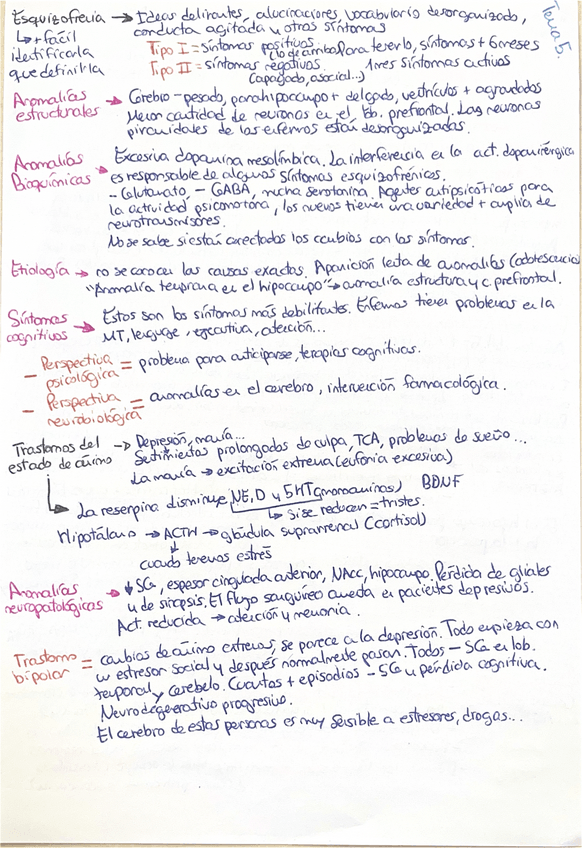 Tema 5.
Esquizofrenia → Ideas delirantes, alucinaciones, vocabulario desorganizado,
↳ + fácil conducta agitada u otros síntomas
identificarla Tipo I = síntomas positivos
que definirla Tipo II = síntomas negativos. 1 mes síntomas activos
para tenerlo, síntomas + 6 meses
(apagado, asocial...)
Anomalías estructurales → Cerebro - pesado, parahipocampo + delgado, ventrículos + agrandados
Menor cantidad de neuronas en el lob. prefrontal. Las neuronas
piramidales de los enfermos están desorganizadas.
Anomalías Bioquímicas → Excesiva dopamina mesolímbica. La interferencia en la act. dopaminérgica
es responsable de algunos síntomas esquizofrénicos.
- Glutamato, - GABA, mucha serotonina. Agentes antipsicóticos para
la actividad psicomotora, los nuevos tienen una variedad + amplia de
neurotransmisores.
No se sabe si están conectados los cambios con los síntomas.
Etiología → no se conocen las causas exactas. Aparición lenta de anomalías (adolescencia)
"Anomalía temprana en el hipocampo" → anomalía estructura y c prefrontal.
Síntomas cognitivos → Estos son los síntomas más debilitantes. Enfermos tienen problemas en la
MT, lenguaje, ejecutiva, atención...
- Perspectiva psicológica = problema para anticiparse, terapias cognitivas.
- Perspectiva neurobiológica = anomalías en el cerebro, intervención farmacológica.
Trastornos del estado de ánimo → Depresión, manía...
Sentimientos prolongados de culpa, TCA, problemas de sueño...
La manía → excitación extrema (euforia excesiva)
↳ La reserpina disminuye NE, D y 5HT (monoaminas) BDNF
↳ si se reducen = tristes.
Hipotálamo → ACTH → glándula suprarrenal (cortisol)
↓
cuando tenemos estrés
Anomalías neuropatológicas → ↓ SG, espesor cingulada anterior, NAcc, hipocampo. Pérdida de gliales
y de sinapsis. El flujo sanguíneo aumenta en pacientes depresivos.
Act. reducida → atención y memoria.
Trastorno bipolar = cambios de ánimo extremos, se parece a la depresión. Todo empieza con
un estresor social y después normalmente pasan. Todos - SG en lob.
temporal y cerebelo. Cuantos + episodios - SG y pérdida cognitiva.
Neurodegenerativo progresivo.
El cerebro de estas personas es muy sensible a estresores, drogas...